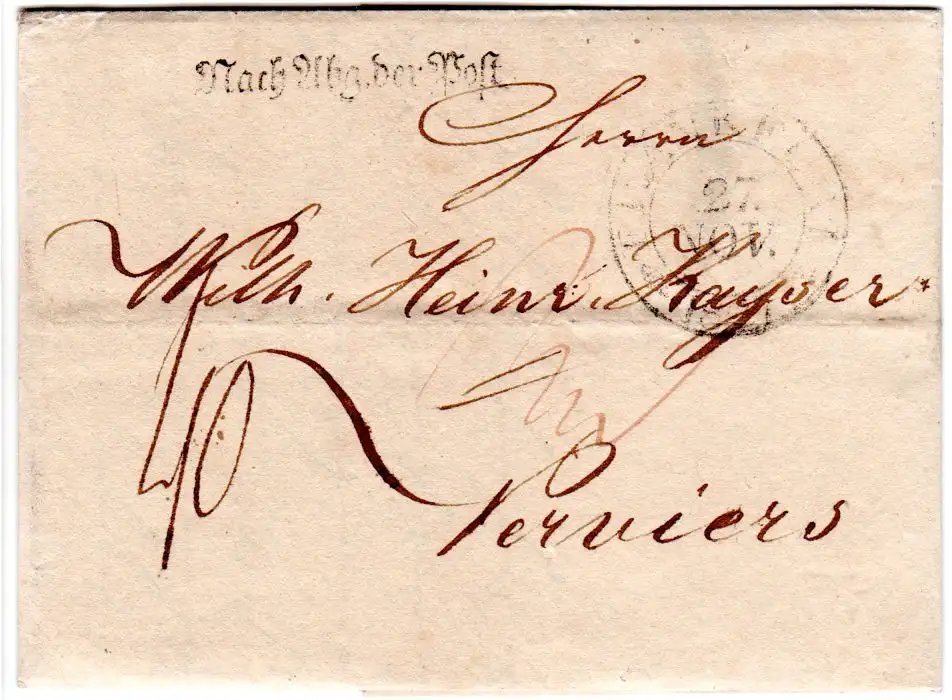 Nach Abg. der Post
Herrn
27.
NOV.
Wilh. Heinr. Kayser
40
Verviers